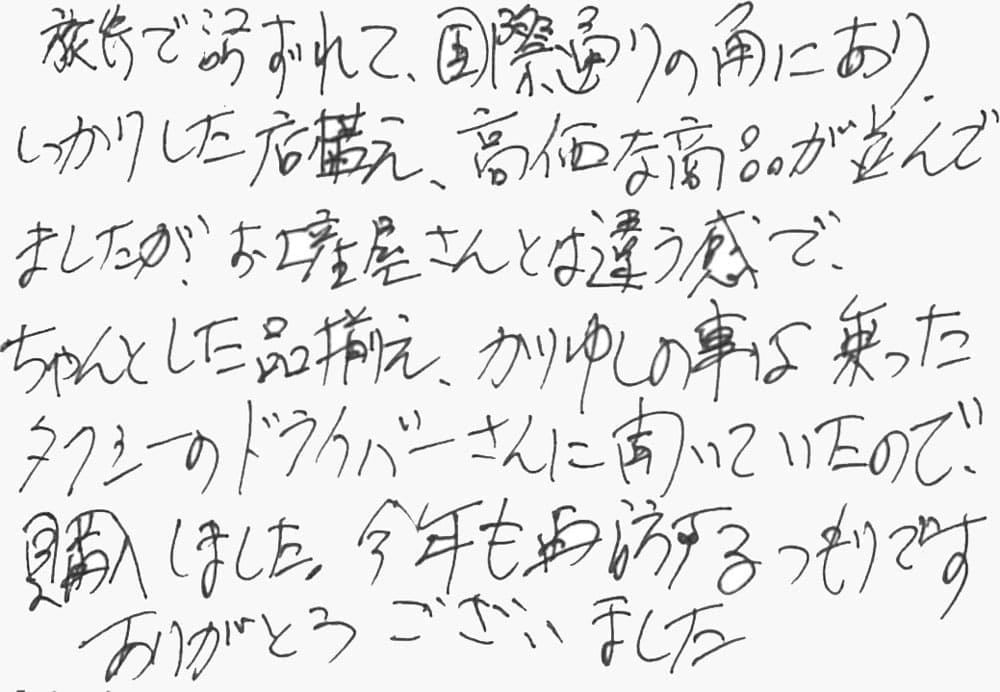 旅行で訪ずれて、国際通りの角にあり、
しっかりした店構え、高価な商品が並んで
ましたが、お土産屋さんとは違う感で、
ちゃんとした品揃え、かりゆしの事は乗った
タクシーのドライバーさんに聞いていたので、
購入しました。今年も再訪するつもりです
ありがとうございました